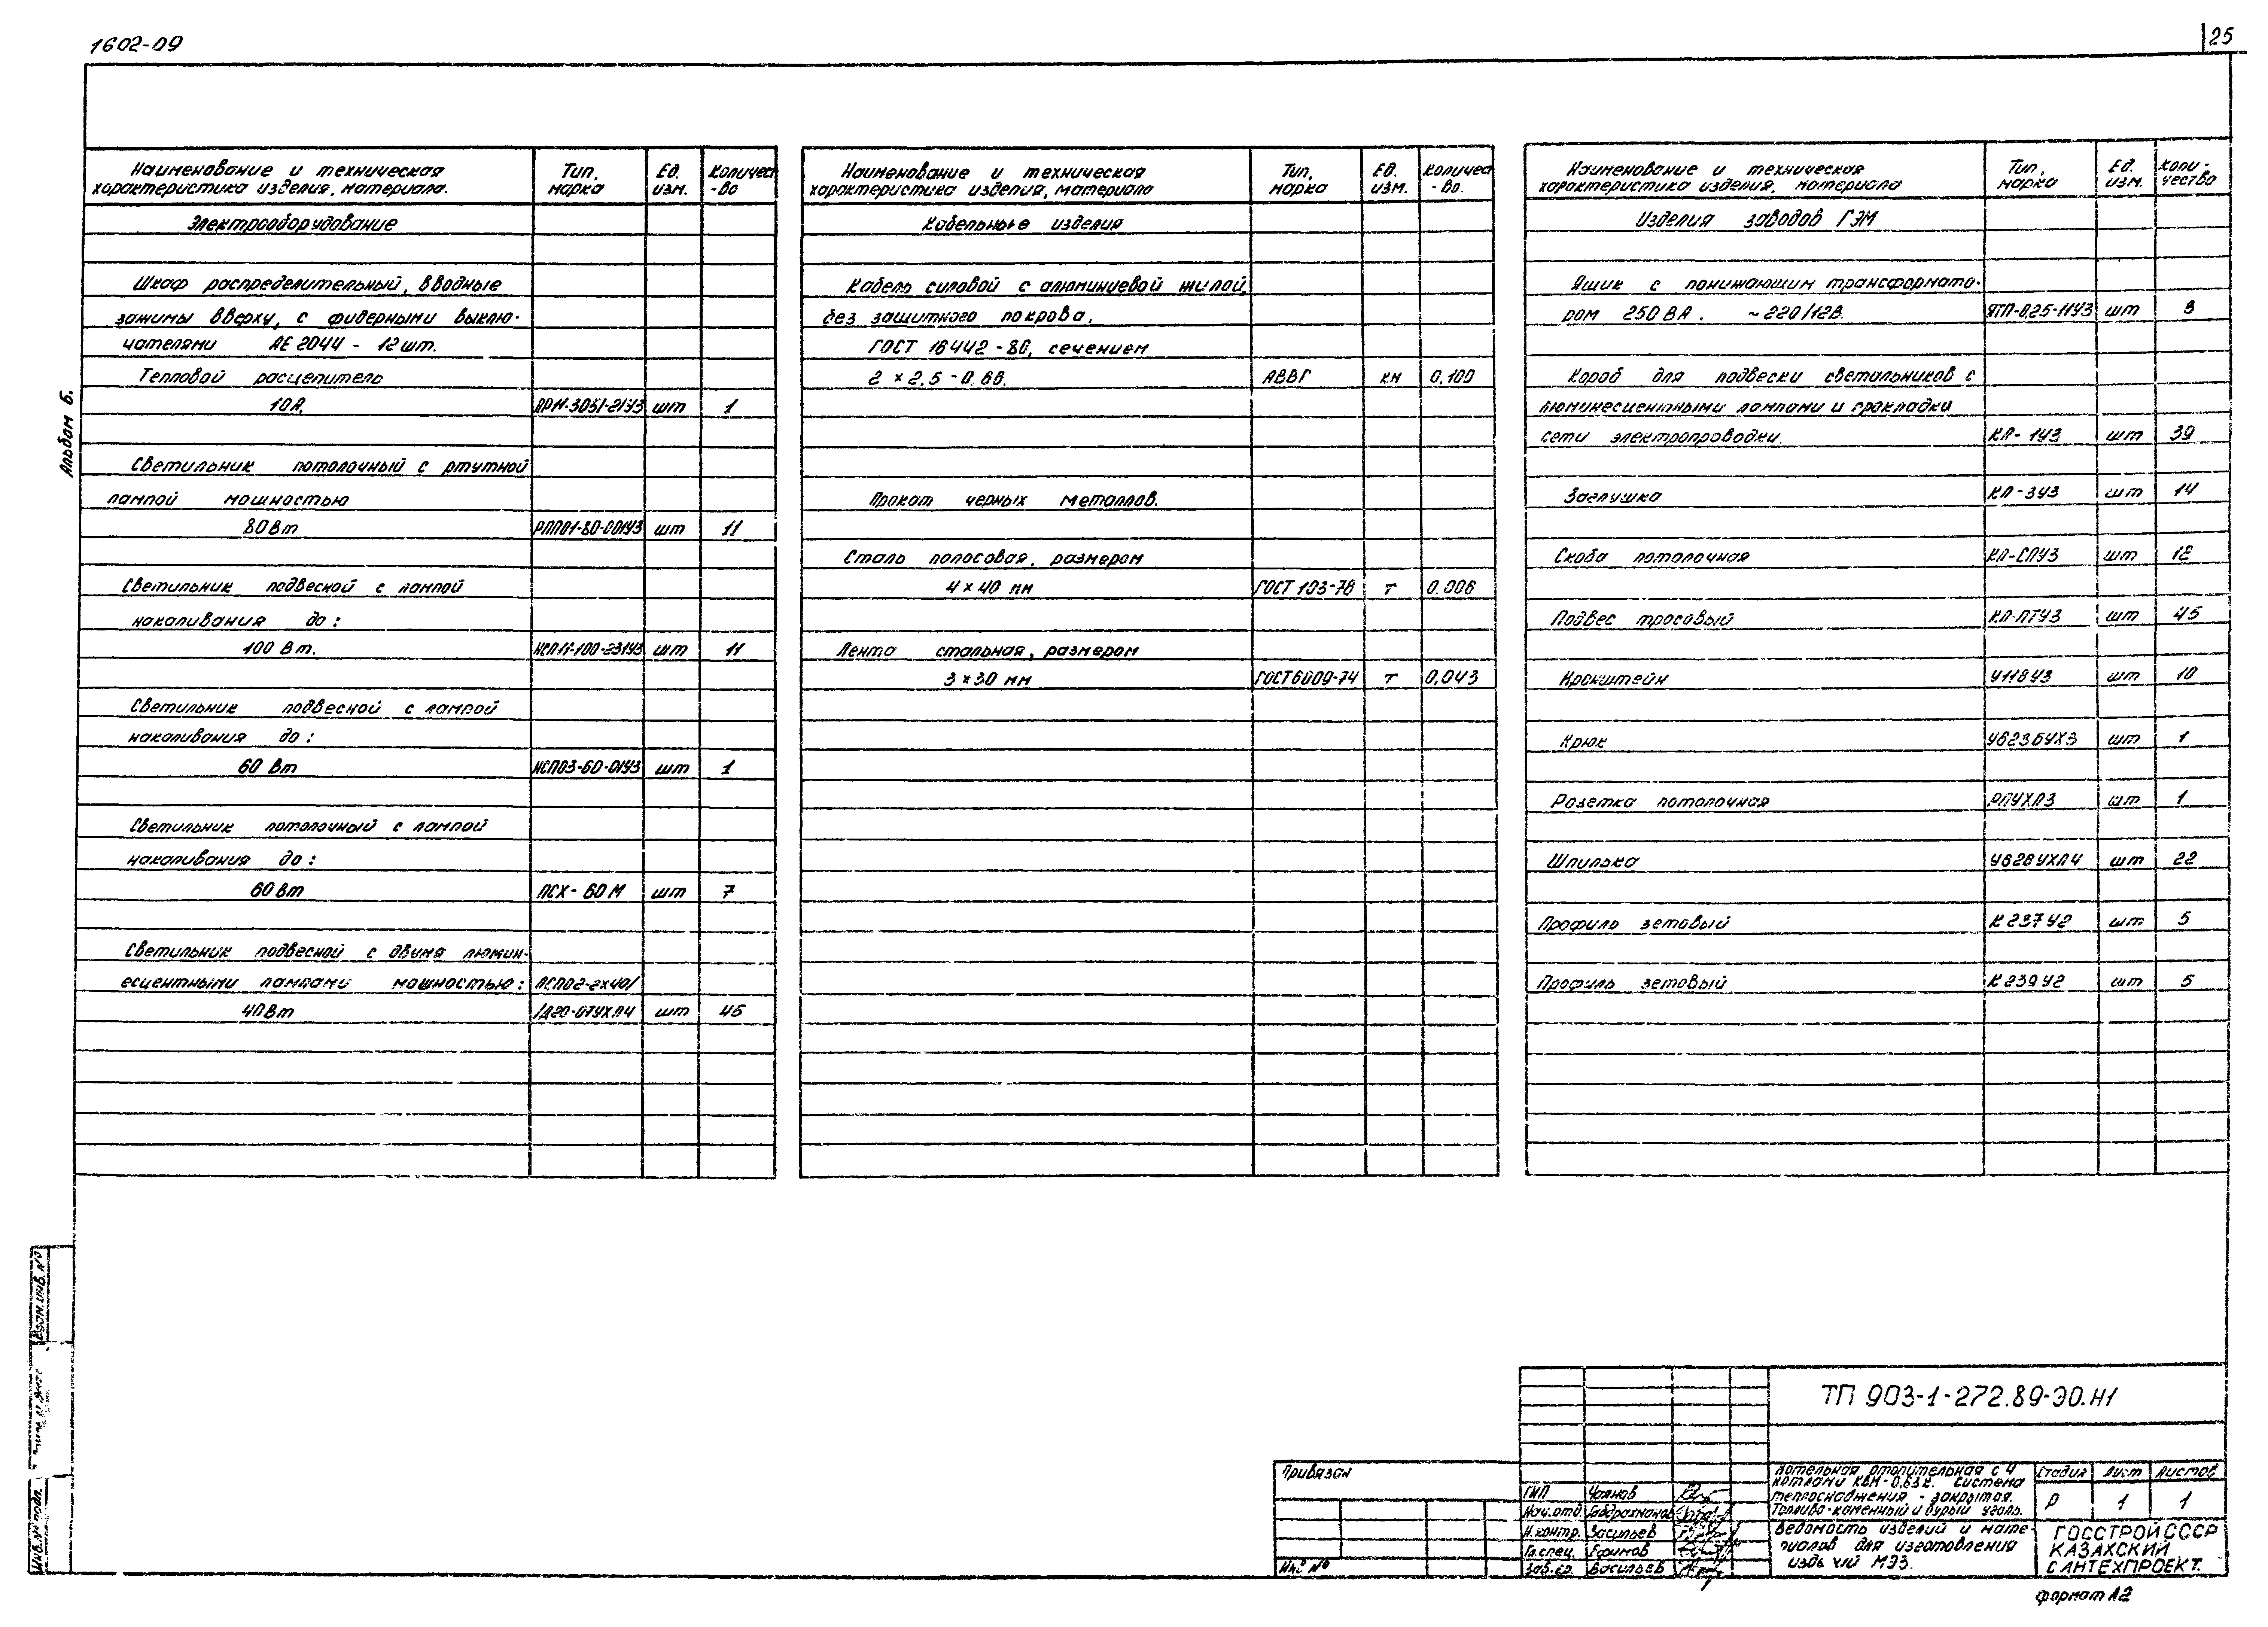 1602-09
25
Альбом 6.
Наименование и техническая характеристика изделия, материала.
Тип, марка
Ед. изм.
Количес-во
Электрооборудование
Шкаф распределительный, вводные
зажимы вверху, с фидерными выклю-
чателями АЕ 2044 - 12 шт.
Тепловой расцепитель
10А. шт 1
Светильник потолочный с ртутной
лампой мощностью
80Вт РПП01-80-001У3 шт 11
Светильник подвесной с лампой
накаливания до:
100 Вт. шт 11
Светильник подвесной с лампой
накаливания до:
60 Вт НСП03-60-01У3 шт 1
Светильник потолочный с лампой
накаливания до:
60 Вт ПСХ-60М шт 7
Светильник подвесной с двумя люмин-
есцентными лампами мощностью: ЛСП02-2х40/
40Вт /Д20-07УХЛ4 шт 45
Наименование и техническая характеристика изделия, материала
Тип, марка
Ед. изм.
Количес-во.
Кабельные изделия
Кабель силовой с алюминиевой жилой,
без защитного покрова,
ГОСТ 16442-80, сечением
2 × 2,5 - 0,66. АВВГ км 0,100
Прокат черных металлов.
Сталь полосовая, размером
4 × 40 мм ГОСТ 103-76 т 0,006
Лента стальная, размером
3 × 30 мм ГОСТ 6009-74 т 0,043
Наименование и техническая характеристика изделия, материала
Тип, марка
Ед. изм.
Коли-чество
Изделия заводов ГЭМ
Ящик с понижающим трансформато-
ром 250 ВА. ~220/12В. ЯТП-0,25-11У3 шт 3
Короб для подвески светильников с
люминесцентными лампами и прокладки
сети электропроводки. КЛ-1У3 шт 39
Заглушка КЛ-3У3 шт 14
Скоба потолочная КЛ-СПУ3 шт 12
Подвес тросовый КЛ-ПТУ3 шт 45
Кронштейн У118У3 шт 10
Крюк У623БУХ3 шт 1
Розетка потолочная шт 1
Шпилька У628УХЛ4 шт 22
Профиль зетовый К 237У2 шт 5
Профиль зетовый К 239У2 шт 5
Взам. инв. №
Инв. № подл.
Привязан
Инв №
ТП 903-1-272.89-ЭО.Н1
ГИП Чаянов
Нач.отд. Габдрахманов
Н.контр. Васильев
Гл.спец. Ефимов
Зав.гр. Васильев
Котельная отопительная с 4
котлами КВм-0,63К. Система
теплоснабжения - закрытая.
Топливо-каменный и бурый уголь.
Стадия Лист Листов
Р 1 1
Ведомость изделий и мате-
риалов для изготовления
изделий МЭЗ.
ГОССТРОЙ СССР
КАЗАХСКИЙ
САНТЕХПРОЕКТ.
формат А2